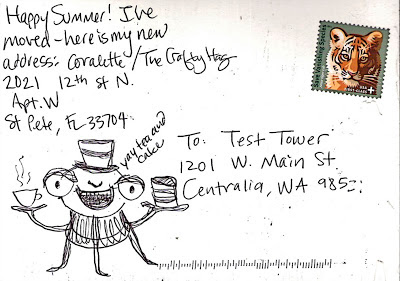 Happy Summer! I've
moved - here is my new
address: Coralette / The Crafty Hag
2021 12th St N.
Apt. W
St Pete, FL 33704
yay tea and
cake
To: Test Tower
1201 W. Main St.
Centralia, WA